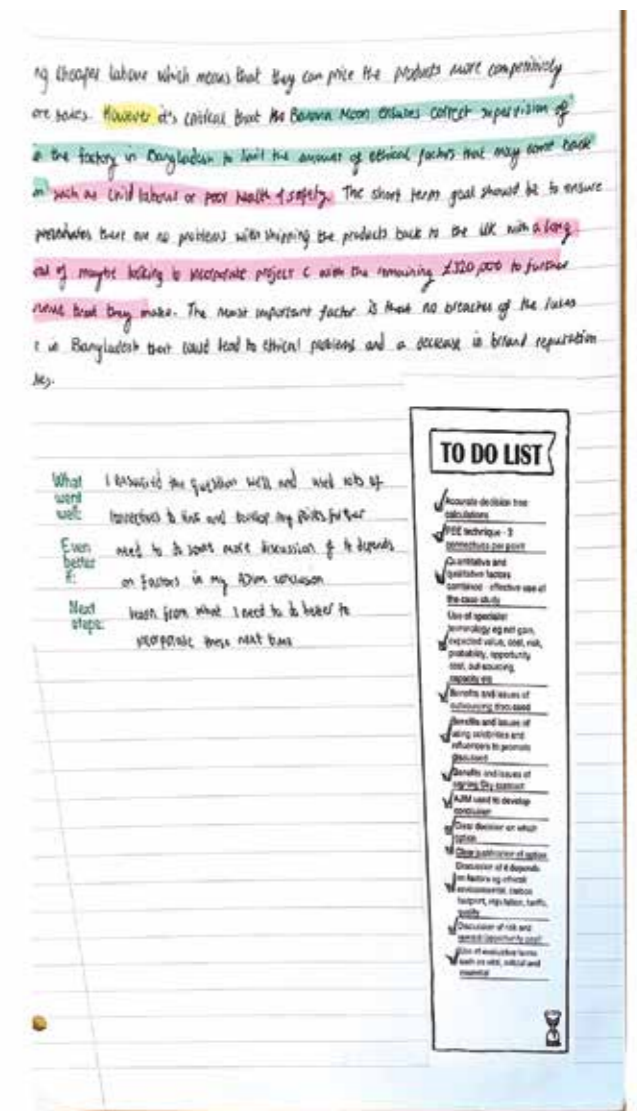 ng cheaper labour which means that they can price the products more competitively
ore sales. However it's critical that the Banana Moon ensures correct supervision of
in the factory in Bangladesh to limit the amount of ethical factors that may come back
such as child labour or poor health & safety. The short term goal should be to ensure
there are no problems with shipping the products back to the UK with a long
of maybe looking to incorporate project C with the remaining £320,000 to further
that they make. The most important factor is that no breaches of the laws
in Bangladesh that could lead to ethical problems and a decrease in brand reputation
What went well: I answered the question well and used lots of
connectives to link and develop my points further
Even better if: need to do some more discussion of it depends
on factors in my conclusion
Next steps: learn from what I need to do better to
incorporate these next time
TO DO LIST
Accurate decision tree
calculations
PEE technique - 3
connectives per point
Quantitative and
qualitative factors
combined - effective use of
the case study
Use of specialist
terminology eg net gain,
expected value, cost, risk,
probability, opportunity
cost, out-sourcing,
capacity etc
Benefits and issues of
outsourcing discussed
Benefits and issues of
using celebrities and
influencers to promote
discussed
Benefits and issues of
signing Sky contract
AJIM used to develop
conclusion
Clear decision on which
option
Clear justification of option
Discussion of it depends
on factors eg ethical,
environmental, carbon
footprint, reputation, tariffs,
quality
Discussion of risk and
reward (opportunity cost)
Use of evaluative terms
such as vital, critical and
essential